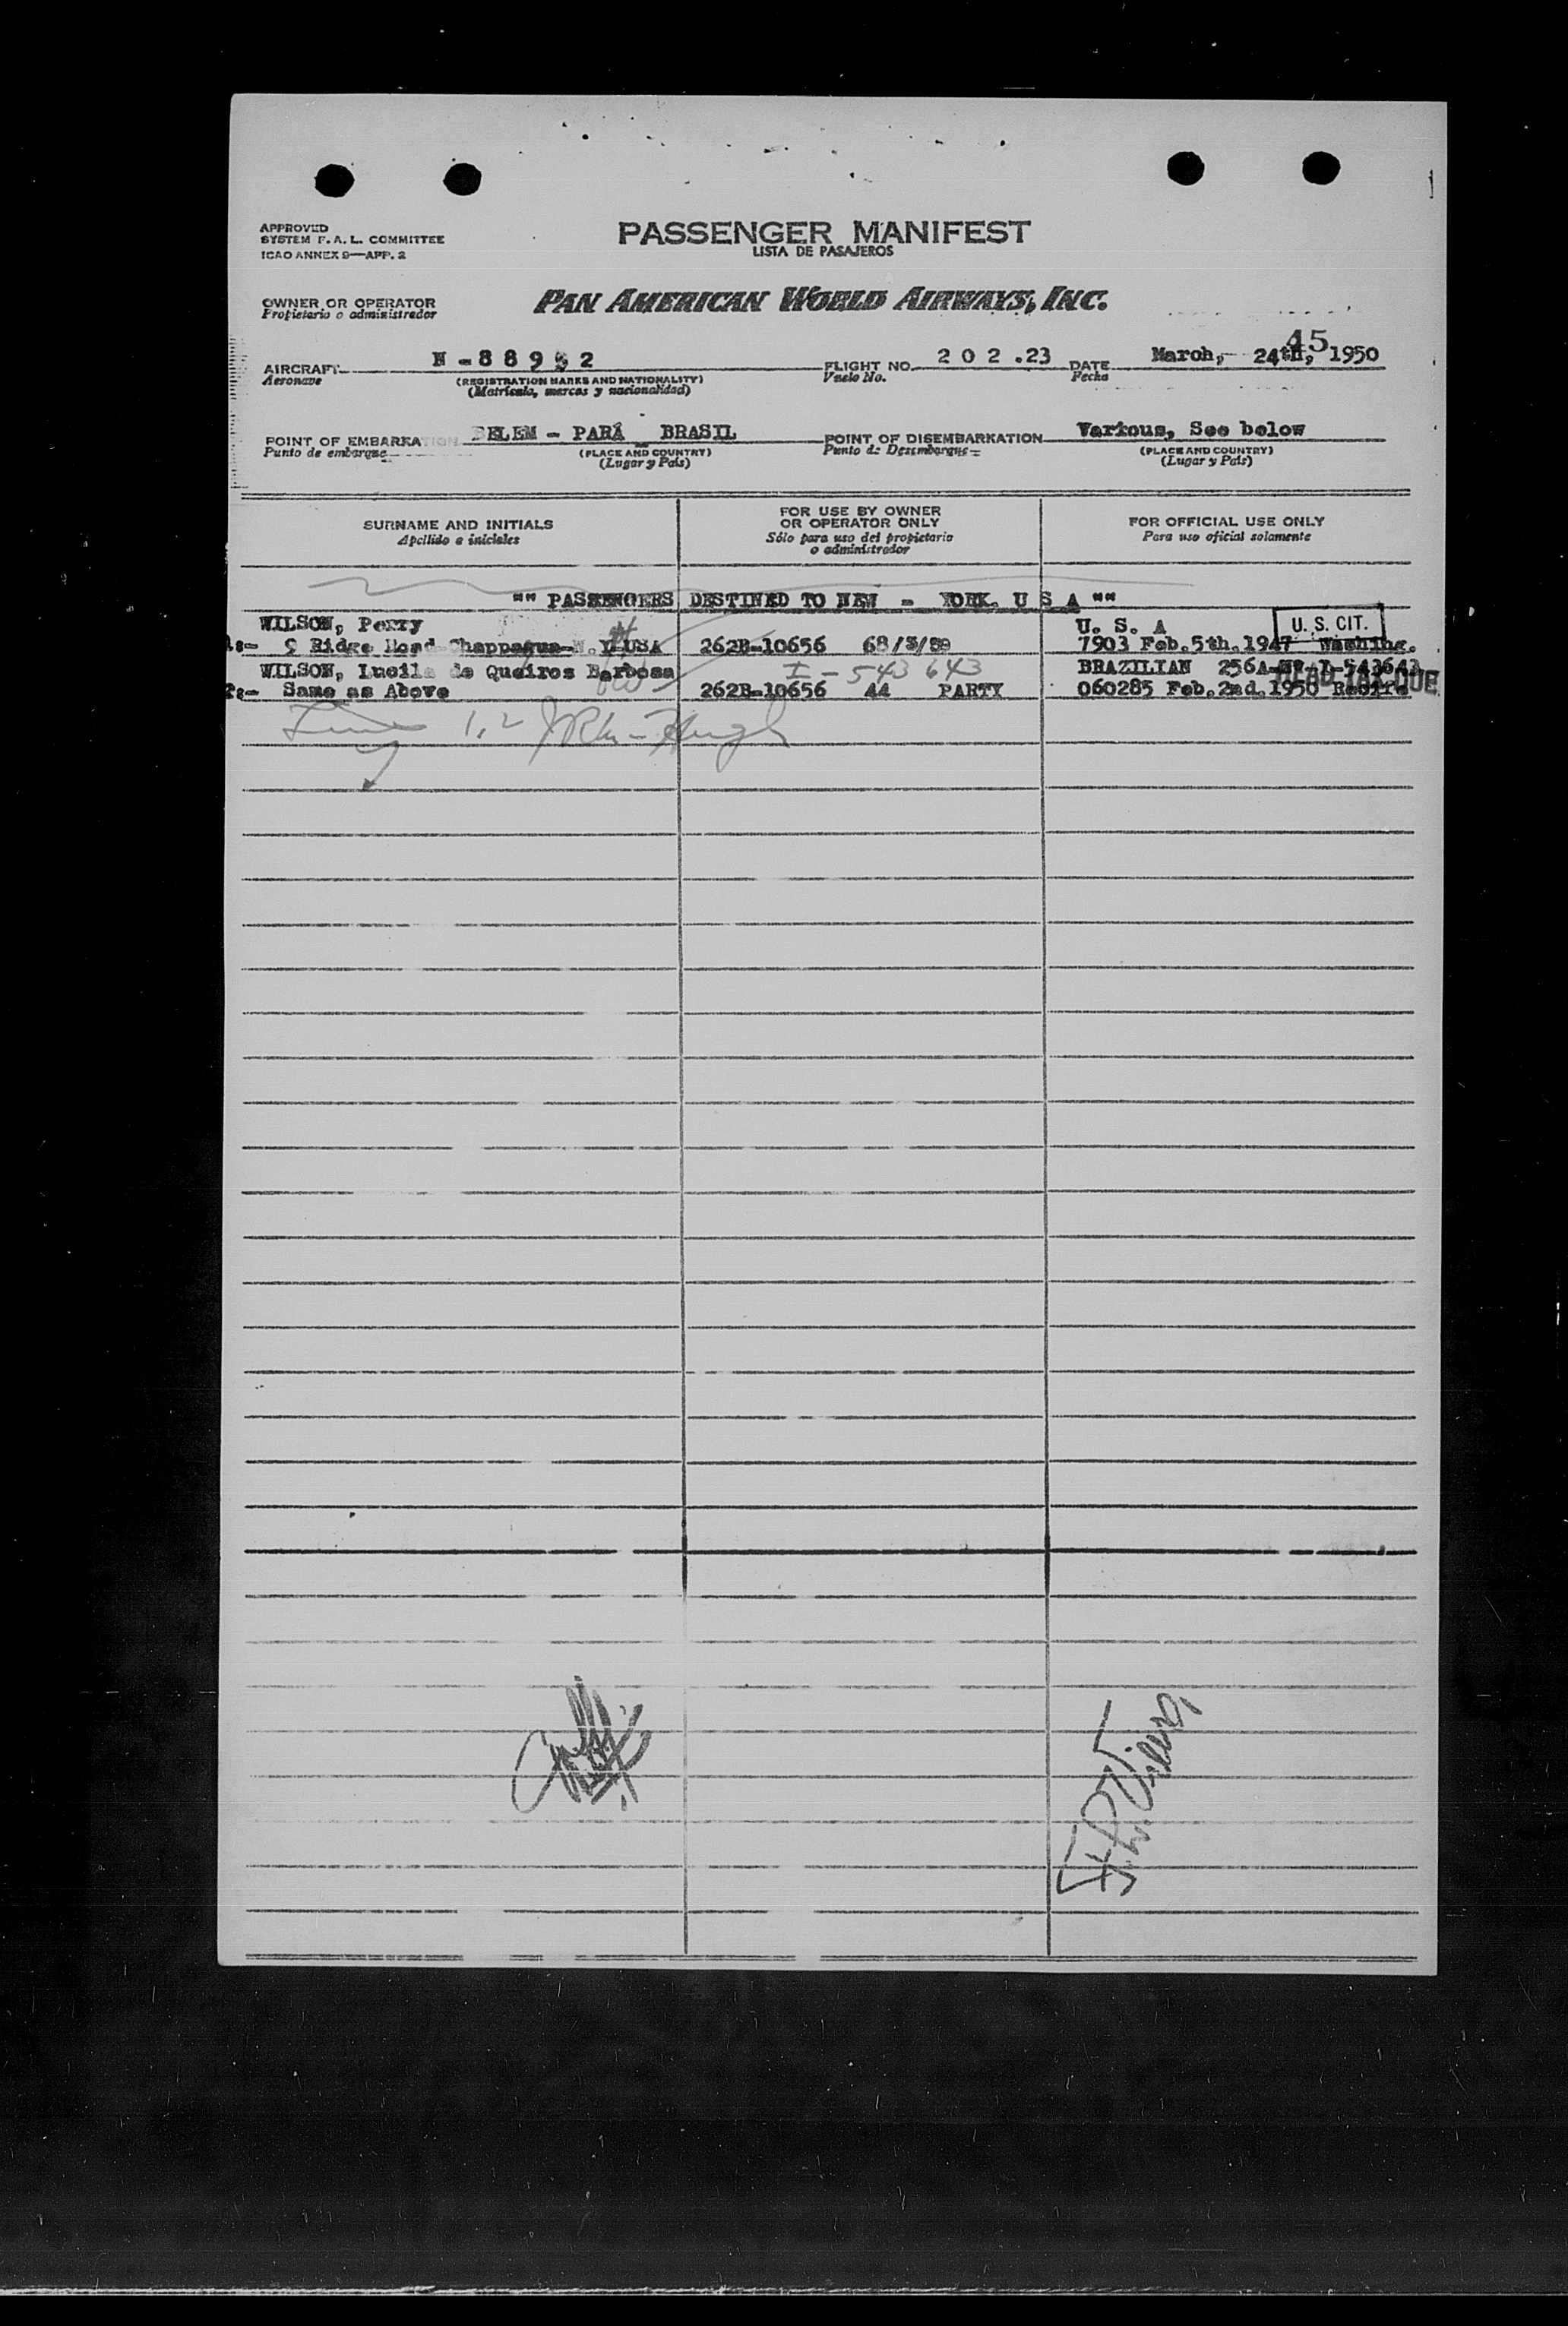 APPROVED
SYSTEM F.A.L. COMMITTEE
ICAO ANNEX 9—APP. 2
PASSENGER MANIFEST
LISTA DE PASAJEROS
OWNER OR OPERATOR
Propietario o administrador
PAN AMERICAN WORLD AIRWAYS, INC.
45
AIRCRAFT N - 8 8 9 5 2 FLIGHT NO. 2 0 2 .23 DATE March, 24th, 1950
Aeronave (REGISTRATION MARKS AND NATIONALITY) Vuelo No. Fecha
(Matrícula, marcas y nacionalidad)
POINT OF EMBARKATION BELEM - PARÁ BRASIL POINT OF DISEMBARKATION Various, See below
Punto de embarque (PLACE AND COUNTRY) Punto de Desembarque (PLACE AND COUNTRY)
(Lugar y País) (Lugar y País)
SURNAME AND INITIALS FOR USE BY OWNER OR OPERATOR ONLY FOR OFFICIAL USE ONLY
Apellido e iniciales Sólo para uso del propietario o administrador Para uso oficial solamente
"" PASSENGERS DESTINED TO NEW - YORK. U S A ""
WILSON, Perry U. S. A U. S. CIT.
1s- 9 Ridge Road Chappaqua- N. Y USA 262B-10656 68/ 7903 Feb.5th.1947 Washing.
WILSON, Lucila de Queiros Barbosa I - 543643 BRAZILIAN 256A- I-543643
2s- Same as Above 262B-10656 44 PARTY 060285 Feb.2nd.1950 Recife
HEAD TAX DUE
1, 2